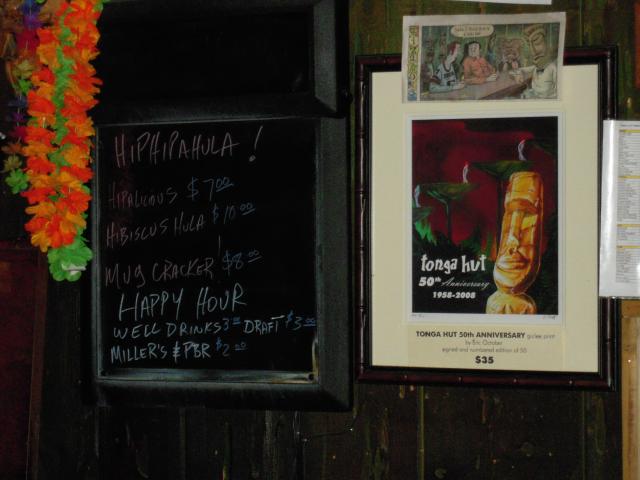 HIPHIPAHULA!
HIPALICIOUS $7.00
HIBISCUS HULA $10.00
MUG CRACKER! $8.00
HAPPY HOUR
WELL DRINKS 3.00 DRAFT $3.00
MILLER'S & PBR $2.00
tonga hut
50th Anniversary
1958-2008
TONGA HUT 50th ANNIVERSARY giclee print
by Eric October
signed and numbered edition of 50
$35